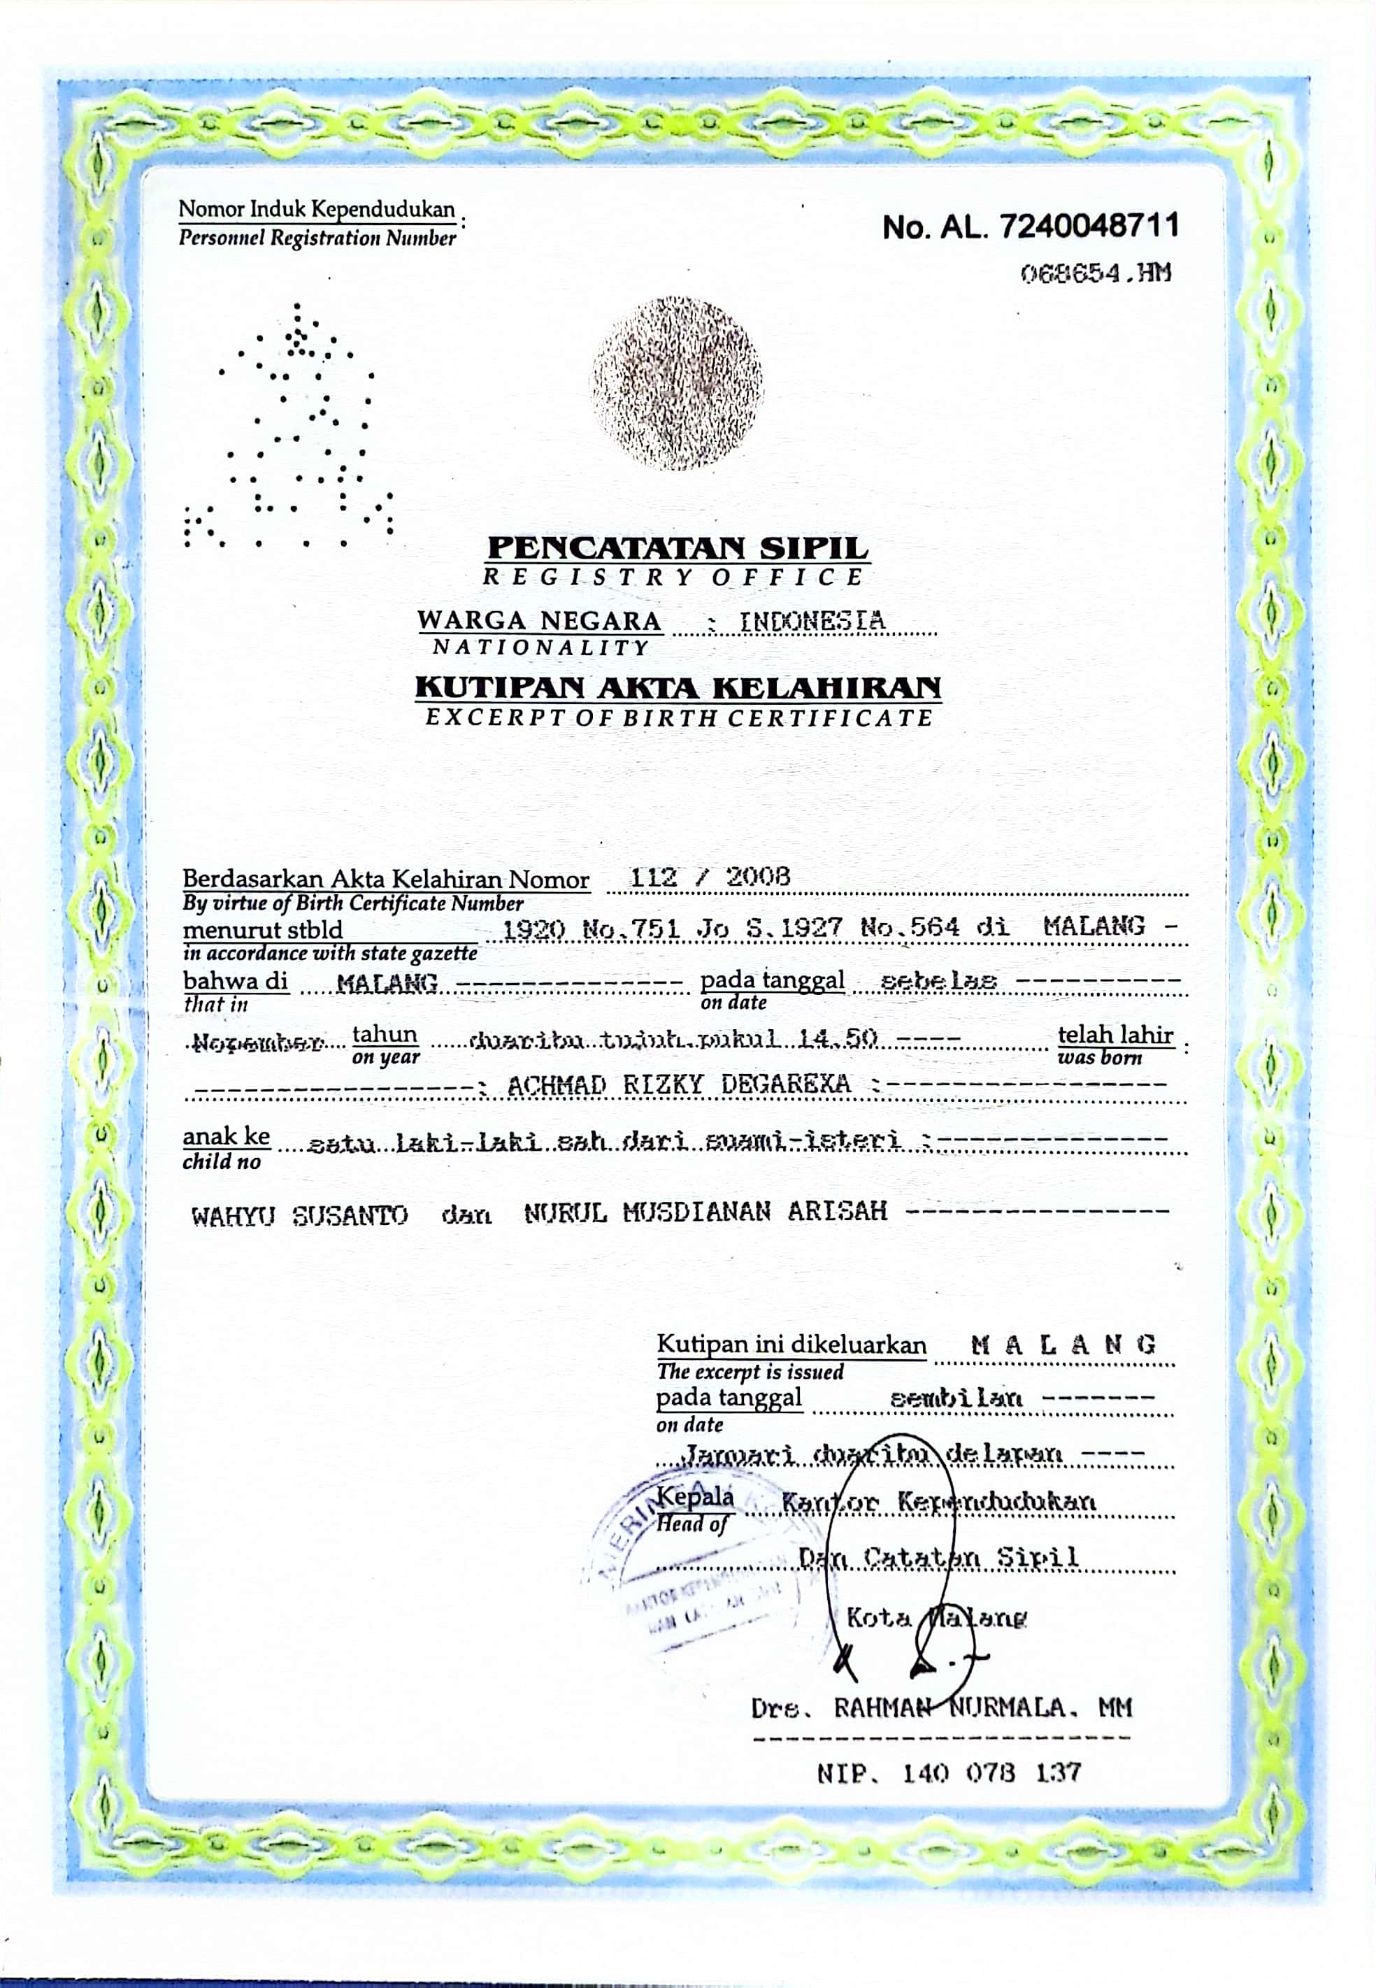 Nomor Induk Kependudukan :
Personnel Registration Number
No. AL. 7240048711
068654.HM
PENCATATAN SIPIL
REGISTRY OFFICE
WARGA NEGARA : INDONESIA
NATIONALITY
KUTIPAN AKTA KELAHIRAN
EXCERPT OF BIRTH CERTIFICATE
Berdasarkan Akta Kelahiran Nomor 112 / 2008
By virtue of Birth Certificate Number
menurut stbld 1920 No.751 Jo S.1927 No.564 di MALANG -
in accordance with state gazette
bahwa di MALANG -------------- pada tanggal sebelas ----------
that in on date
Nopember tahun duaribu tujuh pukul 14.50 ---- telah lahir :
on year was born
-----------------: ACHMAD RIZKY DEGAREXA :-----------------
anak ke satu laki-laki sah dari suami-isteri :--------------
child no
WAHYU SUSANTO dan NURUL MUSDIANAN ARISAH ----------------
Kutipan ini dikeluarkan M A L A N G
The excerpt is issued
pada tanggal sembilan -------
on date
Januari duaribu delapan ----
Kepala Kantor Kependudukan
Head of
Dan Catatan Sipil
Kota Malang
Drs. RAHMAN NURMALA. MM
-----------------------
NIP. 140 078 137